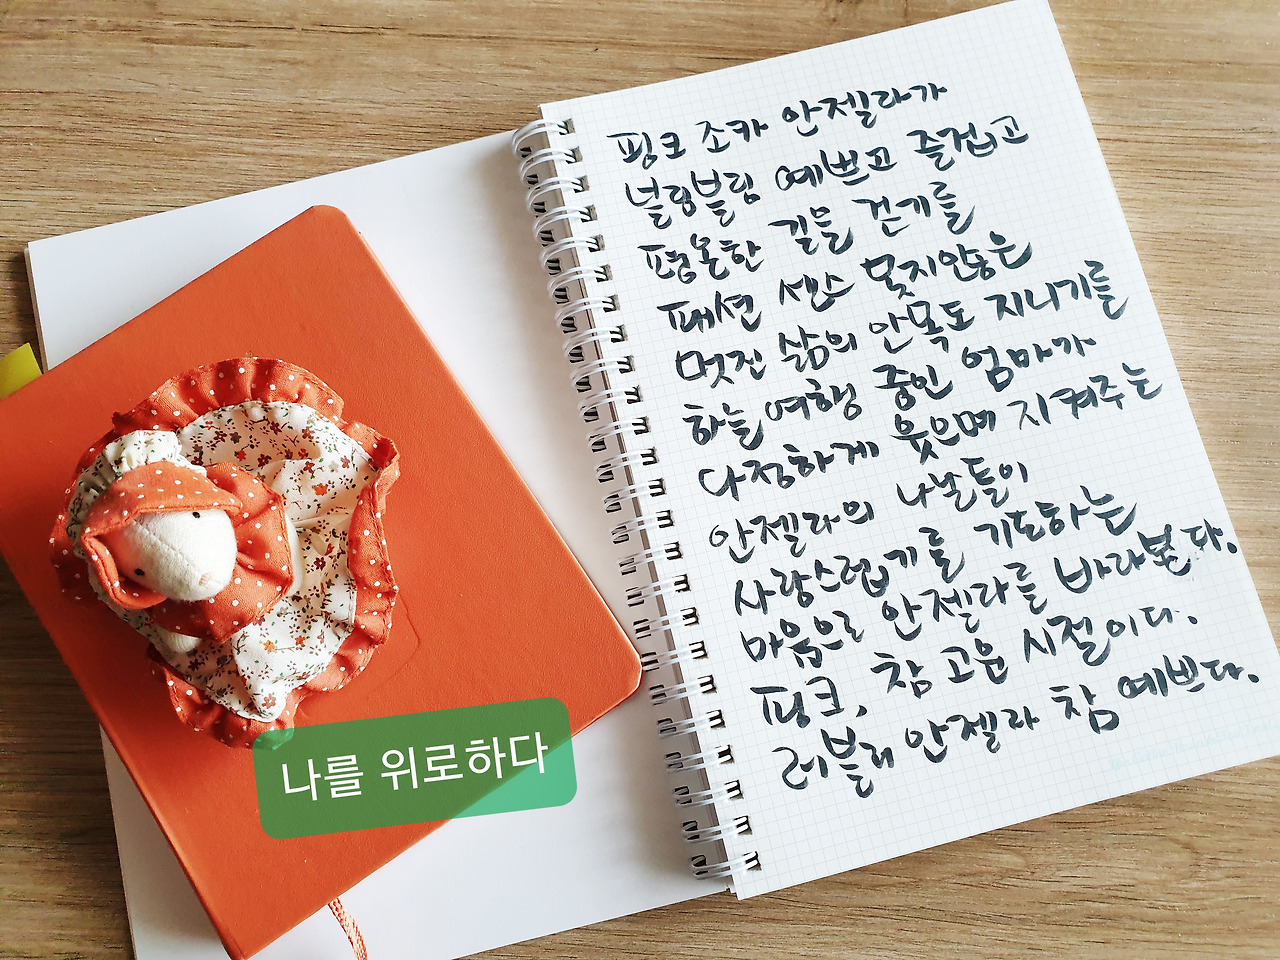 핑크 조카 안젤라가
블링블링 예쁘고 즐겁고
평온한 길을 걷기를
패션 센스 못지않은
멋진 삶의 안목도 지니기를
하늘여행 중인 엄마가
다정하게 웃으며 지켜주는
안젤라의 나날들이
사랑스럽기를 기도하는
마음으로 안젤라를 바라본다.
핑크, 참 고운 시절이다.
러블리 안젤라 참 예쁘다.
나를 위로하다